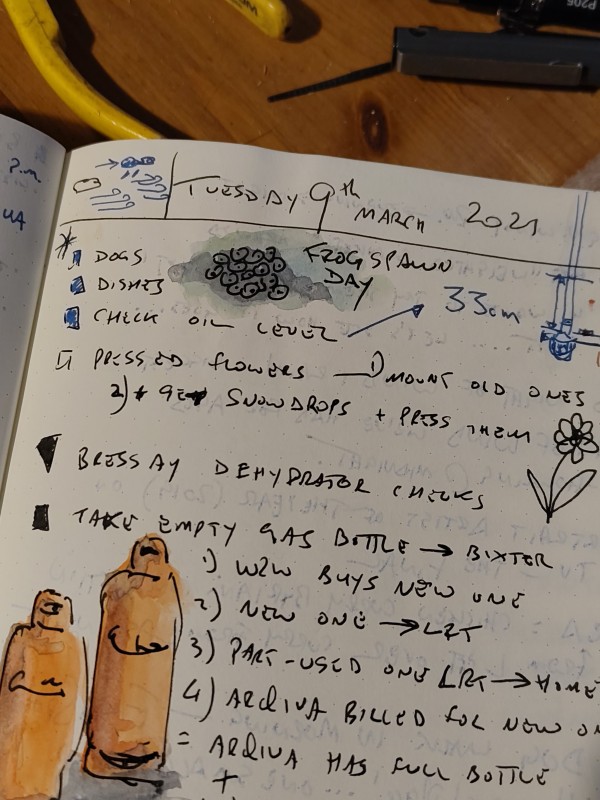 P205
TUESDAY 9th MARCH 2021
P.M.
DOGS
FROGSPAWN
DAY
DISHES
33cm
CHECK OIL LEVEL
PRESSED FLOWERS 1) MOUNT OLD ONES
2) GET SNOWDROPS + PRESS THEM
BRESSAY DEHYDRATOR CHECKS
TAKE EMPTY GAS BOTTLE → BIXTER
1) W2W BUYS NEW ONE
2) NEW ONE → LRT
3) PART-USED ONE LRT → HOME
4) ARQIVA BILLED FOR NEW ON
= ARQIVA HAS FULL BOTTLE
+